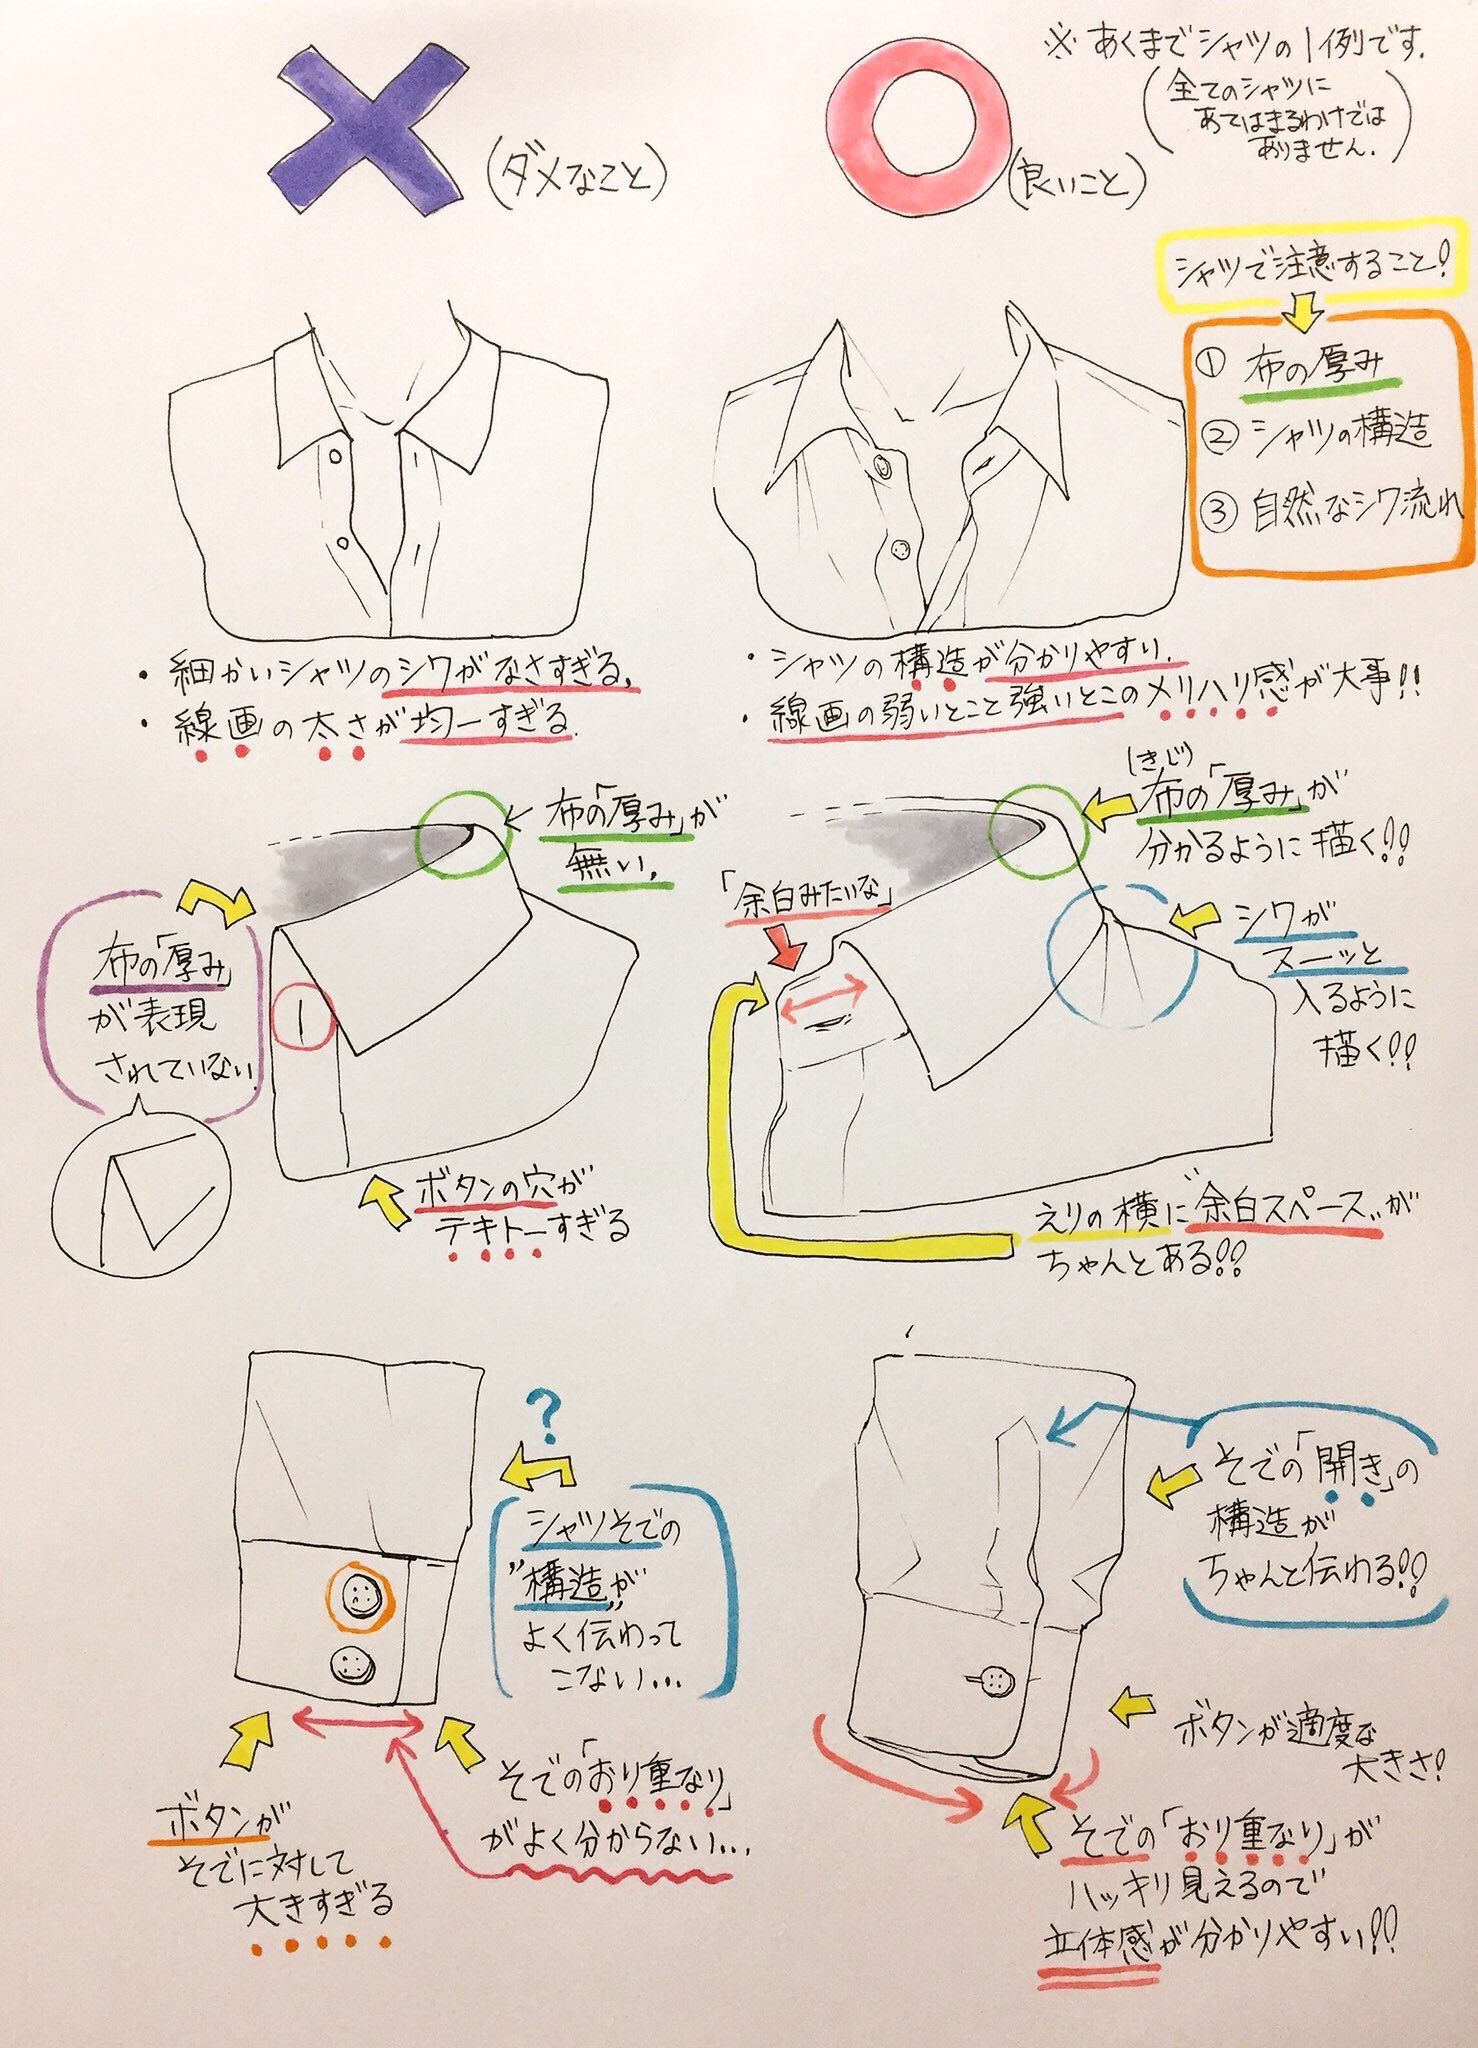 ※あくまでシャツの1例です.
(全てのシャツに
あてはまるわけでは
ありません.)
(ダメなこと)
(良いこと)
シャツで注意すること!
① 布の厚み
② シャツの構造
③ 自然なシワ流れ
・細かいシャツのシワがなさすぎる.
・線画の太さが均一すぎる.
・シャツの構造が分かりやすい.
・線画の弱いとこと強いとこのメリハリ感が大事!!
布の「厚み」が
無い.
布の「厚み」
が表現
されていない.
ボタンの穴が
テキトーすぎる
(きじ)
布の「厚み」が
分かるように描く!!
「余白みたいな」
シワが
スーッと
入るように
描く!!
えりの横に"余白スペース"が
ちゃんとある!!
?
シャツそでの
"構造"が
よく伝わって
こない...
ボタンが
そでに対して
大きすぎる
そでの「おり重なり」
がよく分からない...
そでの「開き」の
構造が
ちゃんと伝わる!!
ボタンが適度な
大きさ!
そでの「おり重なり」が
ハッキリ見えるので
立体感が分かりやすい!!